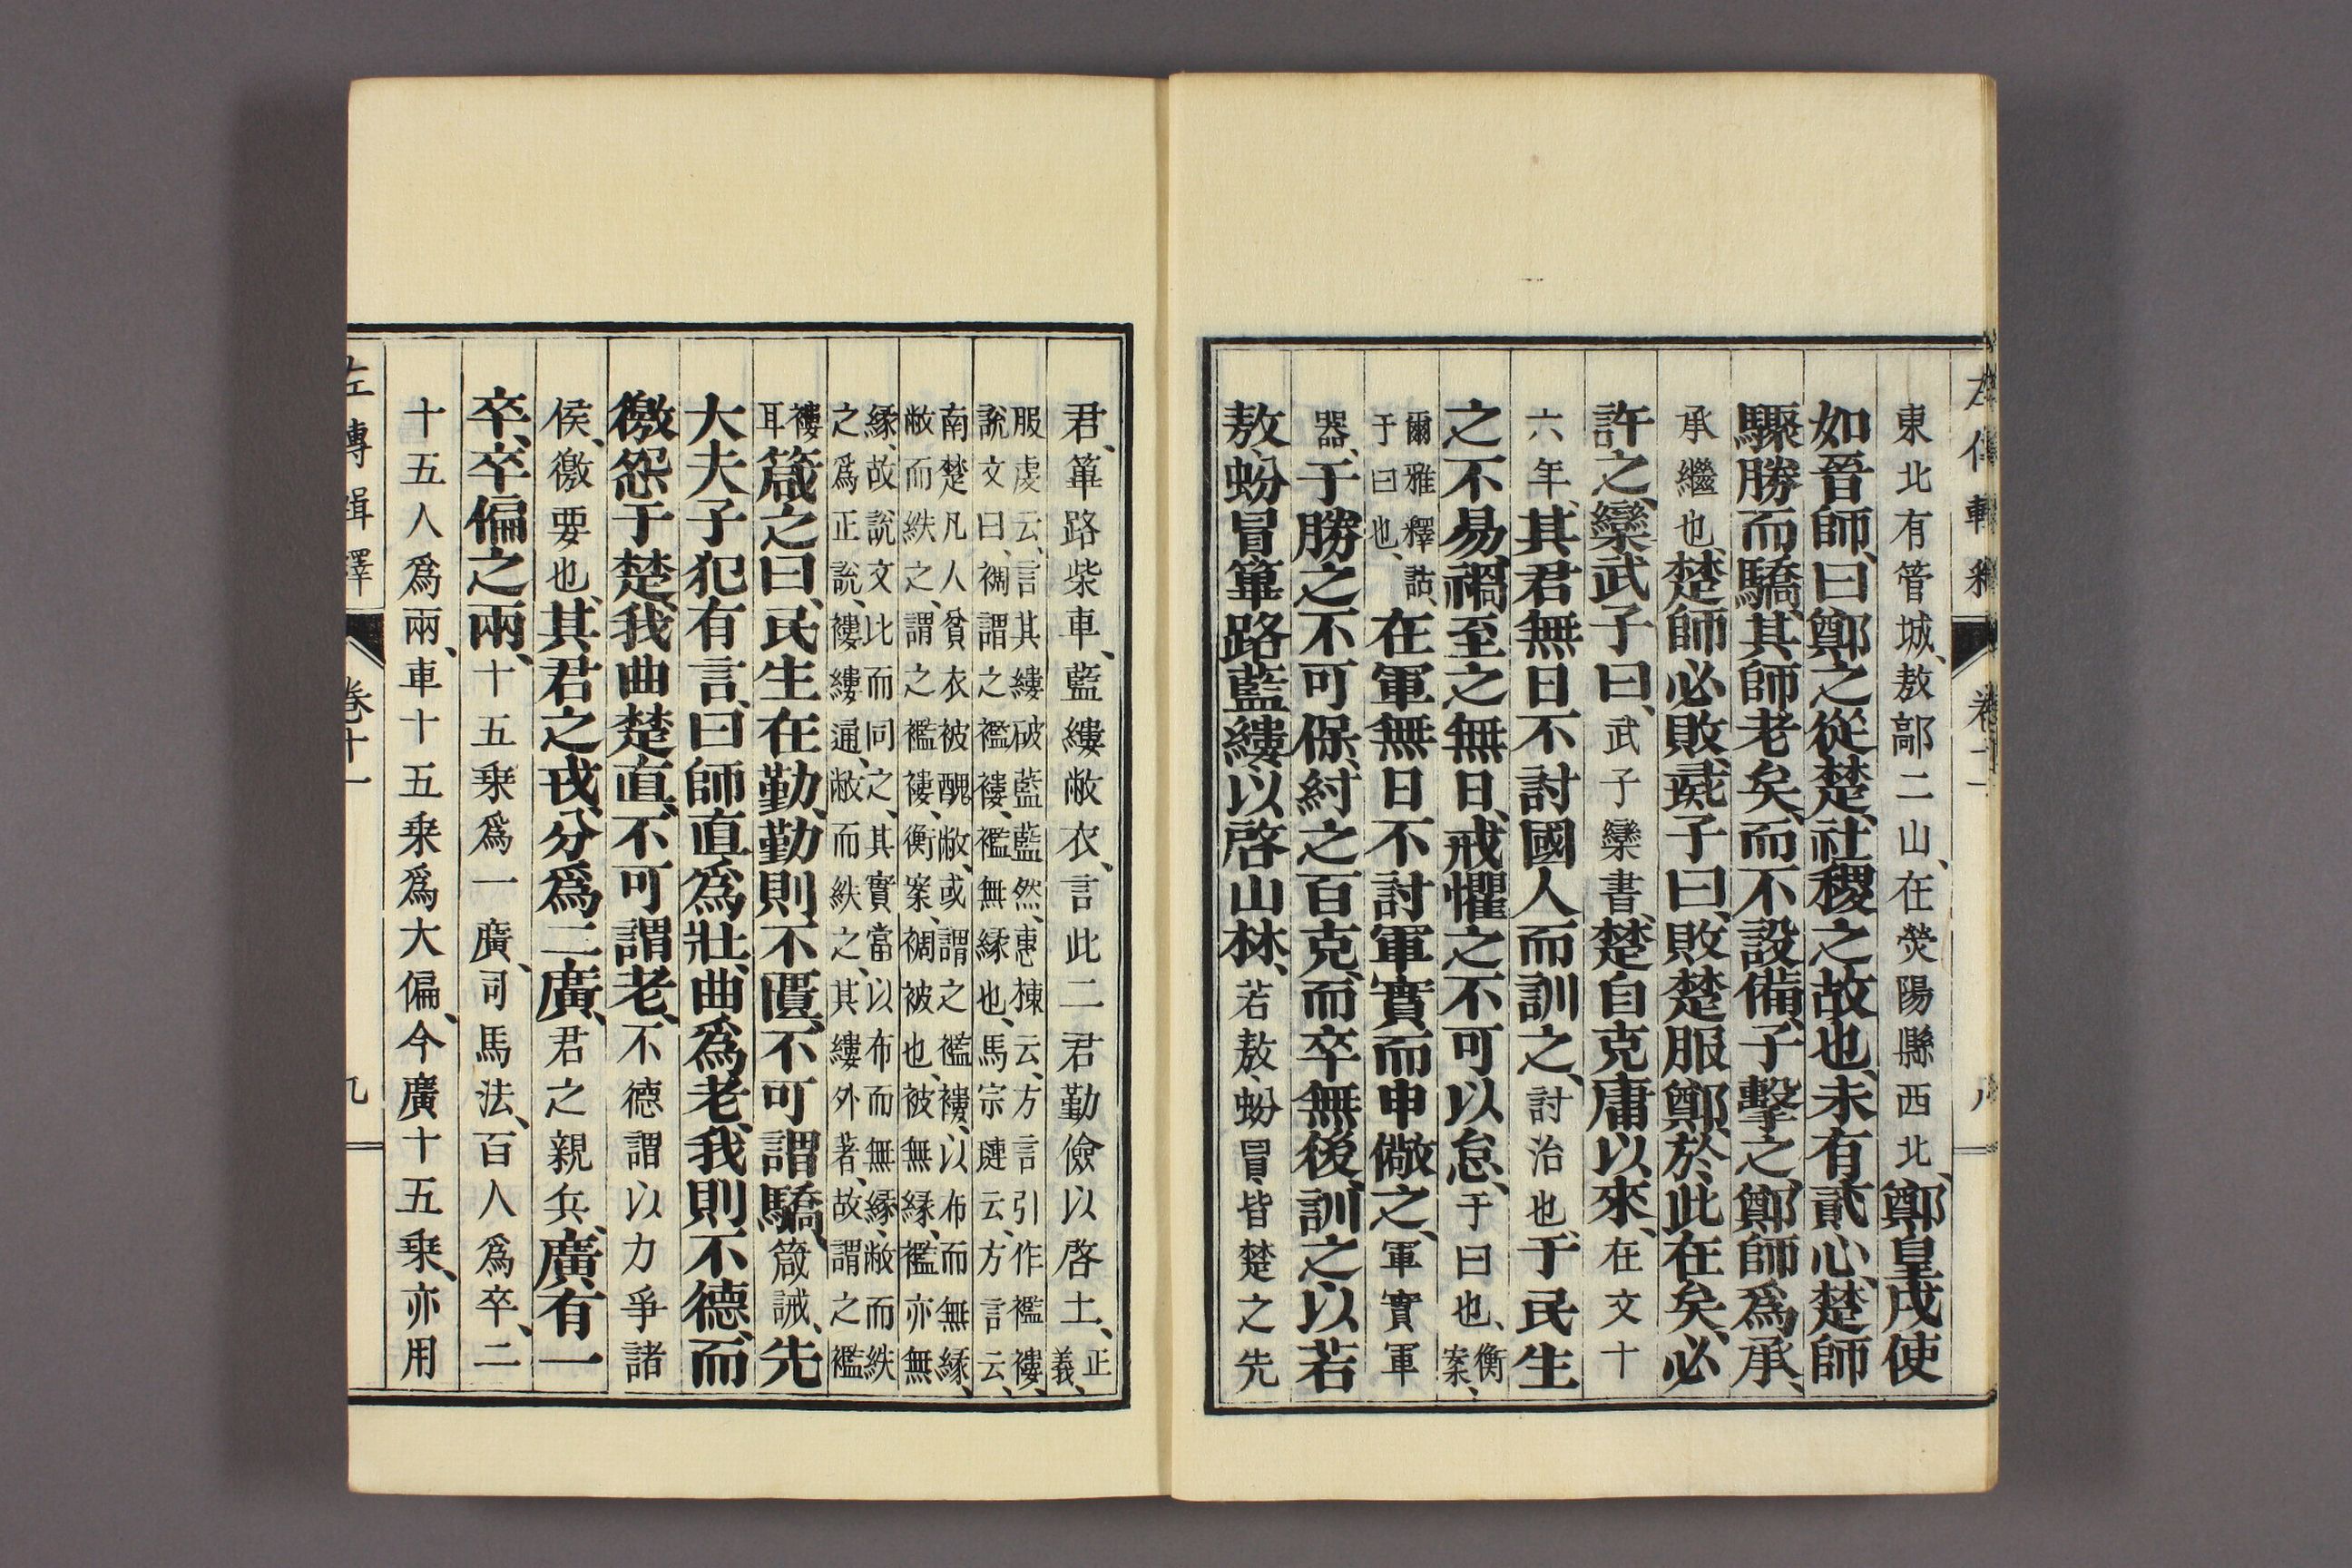 東北有管城、敖鄗二山、在熒陽縣西北、鄭皇戌使
如晉師、曰鄭之從楚、社稷之故也、未有貳心、楚師
驟勝而驕、其師老矣、而不設備、子擊之、鄭師爲承、
承繼也、楚師必敗、彘子曰、敗楚服鄭、於此在矣、必
許之、欒武子曰、武子欒書、楚自克庸以來、在文十
六年、其君無日不討國人而訓之、討治也、于民生
之不易、禍至之無日、戒懼之不可以怠、于曰也、衡案、
爾雅釋詁、于曰也、在軍無日不討軍實而申儆之、軍實軍
器、于勝之不可保、紂之百克、而卒無後、訓之以若
敖、蚡冒篳路藍縷以啓山林、若敖、蚡冒、皆楚之先
左傳輯釋 卷十一 八
君、篳路柴車、藍縷敝衣、言此二君勤儉以啓土、正義、
服虔云、言其縷破藍藍然、惠棟云、方言引作襤褸、
說文曰、裯謂之襤褸、襤無緣也、馬宗璉云、方言云、
南楚凡人貧衣被醜敝、或謂之襤褸、以布而無緣、
敝而紩之、謂之襤褸、衡案、裯被也、被無緣、襤亦無
緣、故說文比而同之、其實當以布而無緣、敝而紩
之爲正說、褸縷通、敝而紩之、其縷外著、故謂之襤
褸耳箴之曰、民生在勤、勤則不匱、不可謂驕、箴誡、先
大夫子犯有言、曰師直爲壯、曲爲老、我則不德、而
徼怨于楚、我曲楚直、不可謂老、不德謂以力爭諸
侯、徼要也、其君之戎、分爲二廣、君之親兵、廣有一
卒、卒偏之兩、十五乗爲一廣、司馬法、百人爲卒、二
十五人爲兩、車十五乗爲大偏、今廣十五乗、亦用
左傳輯釋 卷十一 九